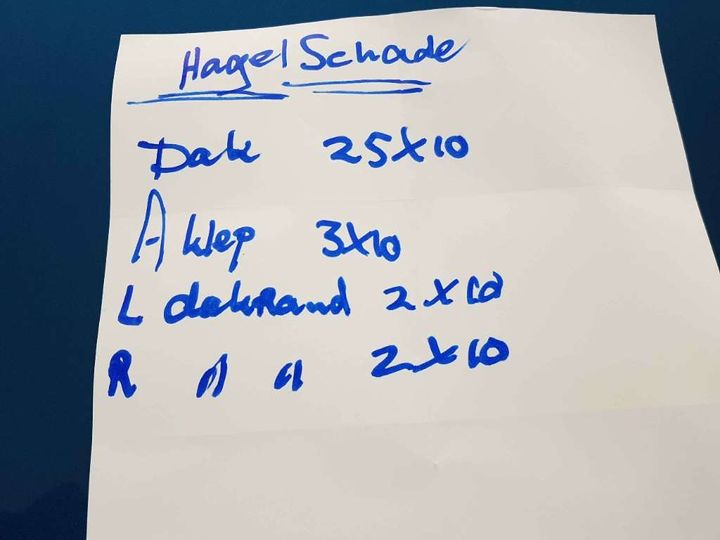 Hagel Schade
Dak 25x10
A klep 3x10
L dakRand 2x10
R " " 2x10